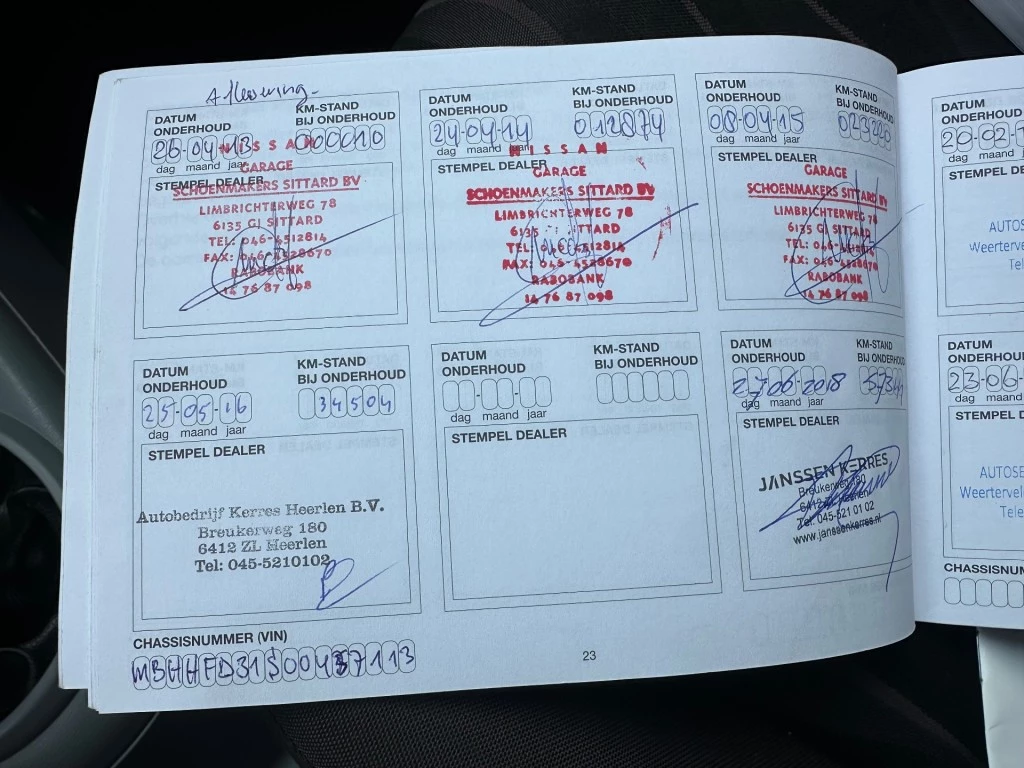 Aflevering
DATUM ONDERHOUD
KM-STAND BIJ ONDERHOUD
26-04-13
000010
dag maand jaar
STEMPEL DEALER
NISSAN
GARAGE
SCHOENMAKERS SITTARD BV
LIMBRICHTERWEG 78
6135 GJ SITTARD
TEL: 046-4512814
FAX: 046-4528670
RABOBANK
14 76 87 098
DATUM ONDERHOUD
KM-STAND BIJ ONDERHOUD
24-04-14
012874
dag maand jaar
STEMPEL DEALER
NISSAN
GARAGE
SCHOENMAKERS SITTARD BV
LIMBRICHTERWEG 78
6135 SITTARD
TEL: 046-4512814
FAX: 046-4528670
RABOBANK
14 76 87 098
DATUM ONDERHOUD
KM-STAND BIJ ONDERHOUD
08-04-15
dag maand jaar
STEMPEL DEALER
GARAGE
SCHOENMAKERS SITTARD BV
LIMBRICHTERWEG 78
6135 GJ SITTARD
TEL: 046-4512814
FAX: 046-4528670
RABOBANK
14 76 87 098
DATUM ONDERHOUD
KM-STAND BIJ ONDERHOUD
25-05-16
34504
dag maand jaar
STEMPEL DEALER
Autobedrijf Kerres Heerlen B.V.
Breukerweg 180
6412 ZL Heerlen
Tel: 045-5210102
DATUM ONDERHOUD
KM-STAND BIJ ONDERHOUD
dag maand jaar
STEMPEL DEALER
DATUM ONDERHOUD
KM-STAND BIJ ONDERHOUD
27-06-2018
dag maand jaar
STEMPEL DEALER
JANSSEN KERRES
Breukerweg 180
6412 ZL Heerlen
Tel. 045-521 01 02
www.janssenkerres.nl
CHASSISNUMMER (VIN)
23
DATUM
ONDERHOUD
20-02-
dag maand
STEMPEL DE
AUTOS
Weertervel
Tel
DATUM
ONDERHOUD
23-06-
dag maand
STEMPEL
AUTOSE
Weertervel
Tele
CHASSISNUM